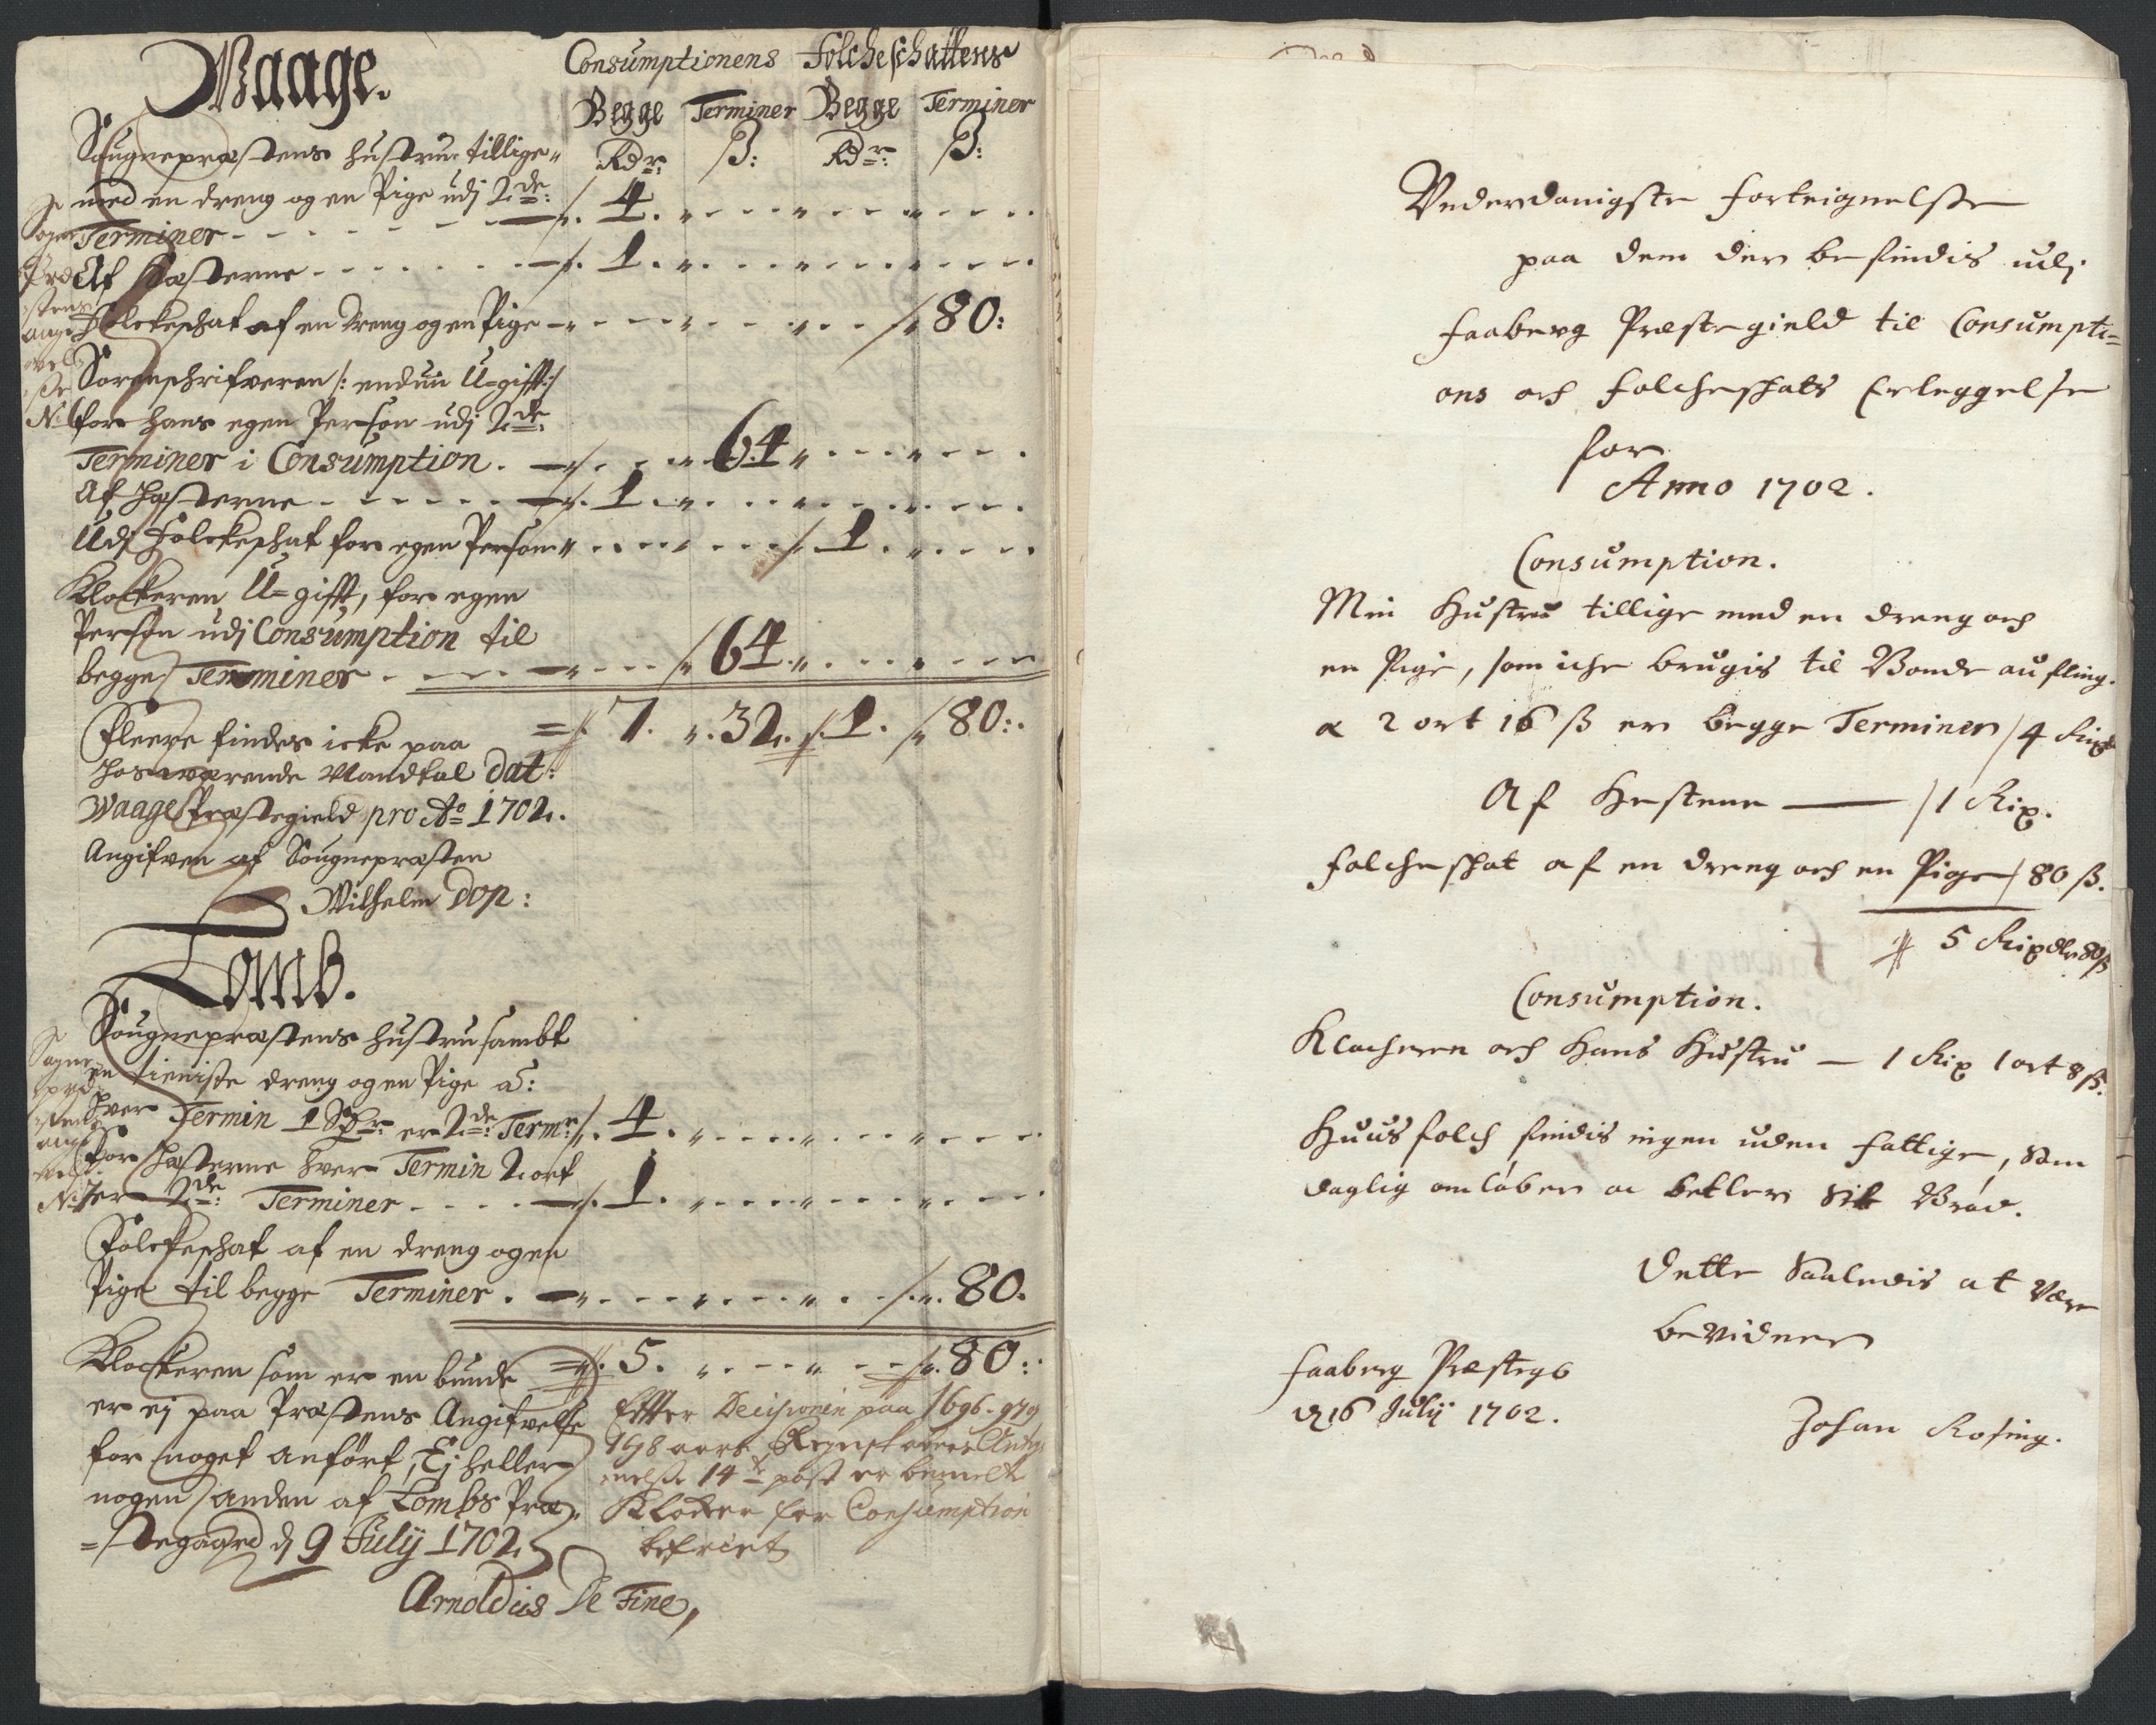 Waage.
Consumptionens Folcheschattens
Begge Terminer Begge Terminer
Rdr: ß: Rdr: ß:
Sougnepræstens hustrue tillige
med en dreng og en Pige udj 2de:
Terminer - - - - - - 4.
Af Hæsterne - - - - - 1.
Folckeschat af en dreng og en Pige - - - 80:
Sorenschrifveren /: endnu U=gift :/
for hans egen Person udj 2de:
Terminer i Consumption. - - 64
Af Hæsterne - - - - - 1.
Udj Folckeschat for egen Person - - - 1.
Klockeren U=gifft, for egen
Person udj Consumption til
begge Terminer - - - - 64
7. 32. 1. 80:
Fleere findes icke paa
hosværende Mandtal dat:
Waage Præstegield pro Ao 1702.
Angifven af Sougnepræsten
Wilhelm Dop:
Sogne
præ
stens
angi
velse
No 6
Lomb.
Sougnepræstens hustru sambt
en tieniste dreng og en Pige a:
hver Termin 1 Rdr er 2de: Termr: 4.
For Hæsterne hver Termin 2 ort
er 2de: Terminer - - - - 1.
Folckeschat af en dreng og en
Pige til begge Terminer. - - - 80.
5. 80:
Sogne
præ
stens
angi
No 7
Klockeren som er en bunde
er ej paa Præstens Angifvelse
for noget anført, Ej heller
nogen anden af Lombs Præ
=stegaard d 9 July 1702.
Arnoldus De Fine,
Effter Decisionen paa 1696. 97 og
198 aars Regnskabers Anteg
nelse 14de post er bemelte
Klocker for Consumption
befriet
Underdanigste forteignelse
paa dem der befindis udj
Faaberg Præstegield til Consumpti=
ons och Folcheschats Erleggelse
for
Anno 1702.
Consumption.
Min Hustru tillige med en dreng och
en Pige, som iche brugis til Bonde aufling.
a 2 ort 16 ß er begge Terminer / 4 Rix
Af Hestene — / 1 Rix.
Folcheschat af en dreng och en Pige / 80 ß.
5 Rixdlr 80 ß
Consumption.
Klocheren och Hans Hustru — 1 Rix 1 ort 8 ß.
Huusfolch findis ingen uden fattige, som
daglig omløber oc betler sit Brød.
Dette Saaledis at være
bevidner
Faaberg Præstegb
d 16 Julij 1702.
Johan Rosing.